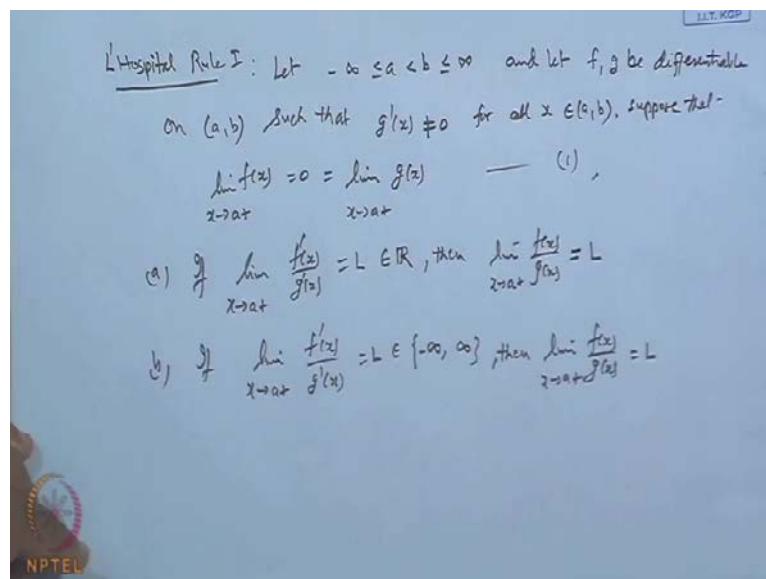 I.I.T. KGP
L'Hospital Rule I : Let - ∞ ≤ a < b ≤ ∞ and let f, g be differentiable
on (a,b) such that g'(x) ≠ 0 for all x ∈ (a,b). suppose that
lim f(x) = 0 = lim g(x) — (1),
x→a+ x→a+
(a) If lim f'(x)/g'(x) = L ∈ ℝ, then lim f(x)/g(x) = L
x→a+ x→a+
(b) If lim f'(x)/g'(x) = L ∈ {-∞, ∞}, then lim f(x)/g(x) = L
x→a+ x→a+
NPTEL